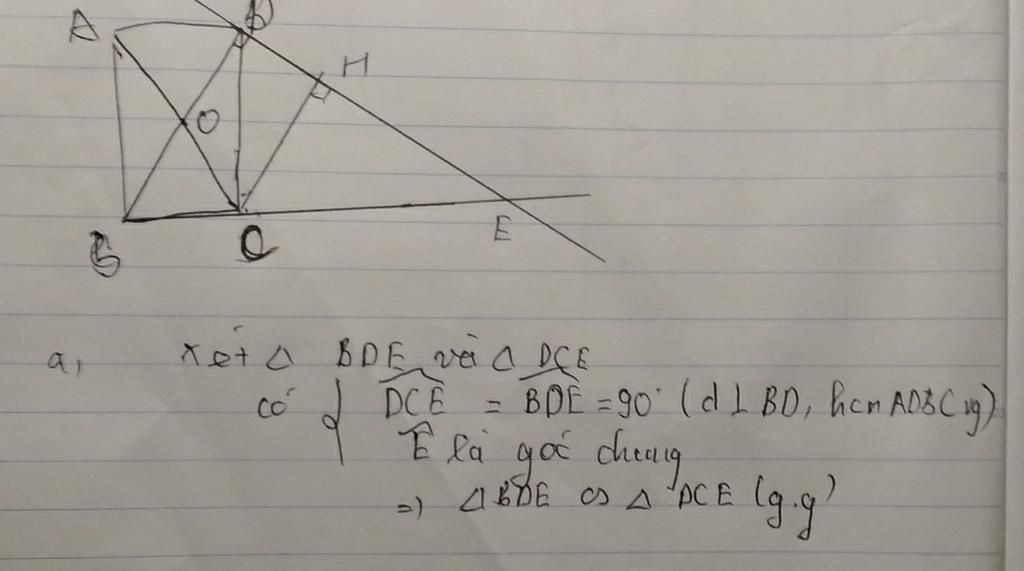 A D
H
O
E
B C
a, xét △ BDE và △ DCE
có { DCE = BDE = 90° (d ⊥ BD, hcn ADBC vg)
Ê là góc chung
=) △ BDE ∽ △ DCE (g.g)